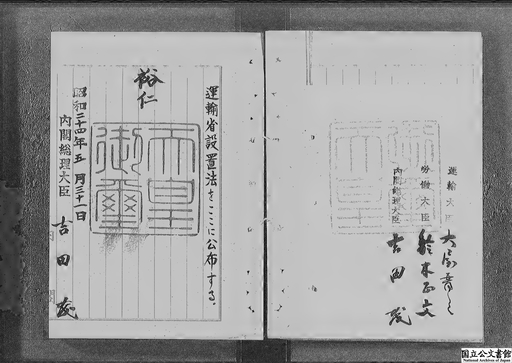 運輸省設置法をここに公布する。
裕仁
天皇御璽
昭和二十四年五月三十一日
内閣総理大臣
吉田茂
運輸大臣
大屋晋三
労働大臣
鈴木正文
内閣総理大臣
吉田茂
国立公文書館
National Archives of Japan